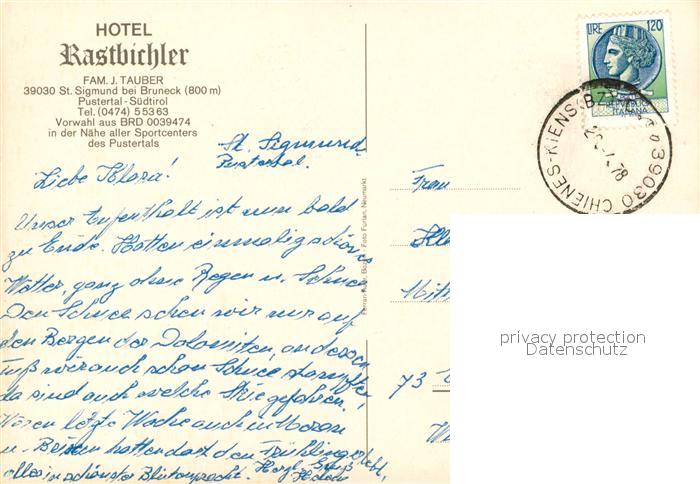 HOTEL
Rastbichler
FAM. J. TAUBER
39030 St. Sigmund bei Bruneck (800 m)
Pustertal - Südtirol
Tel. (0474) 55363
Vorwahl aus BRD 0039474
in der Nähe aller Sportcenters
des Pustertals
LIRE 120
REPUBBLICA
ITALIANA
39030 CHIENES-KIENS BZ
78
St. Sigmund
Pustertal
Liebe Klara!
Unser Aufenthalt ist nun bald
zu Ende. Hatten einmalig schönes
Wetter, ganz ohne Regen u. Schnee
Den Schnee sehen wir nur auf
den Bergen der Dolomiten,
wir auch schon Schnee
da sind auch welche Skiegefahren!
Waren letzte Woche auch in Meran
u. Brixen hatten dort den Frühling erlebt,
alles in schönster Blütenpracht. Herzl. Gruß
Foto Furlan, Neumarkt
Frau
Mitt
73
privacy protection
Datenschutz